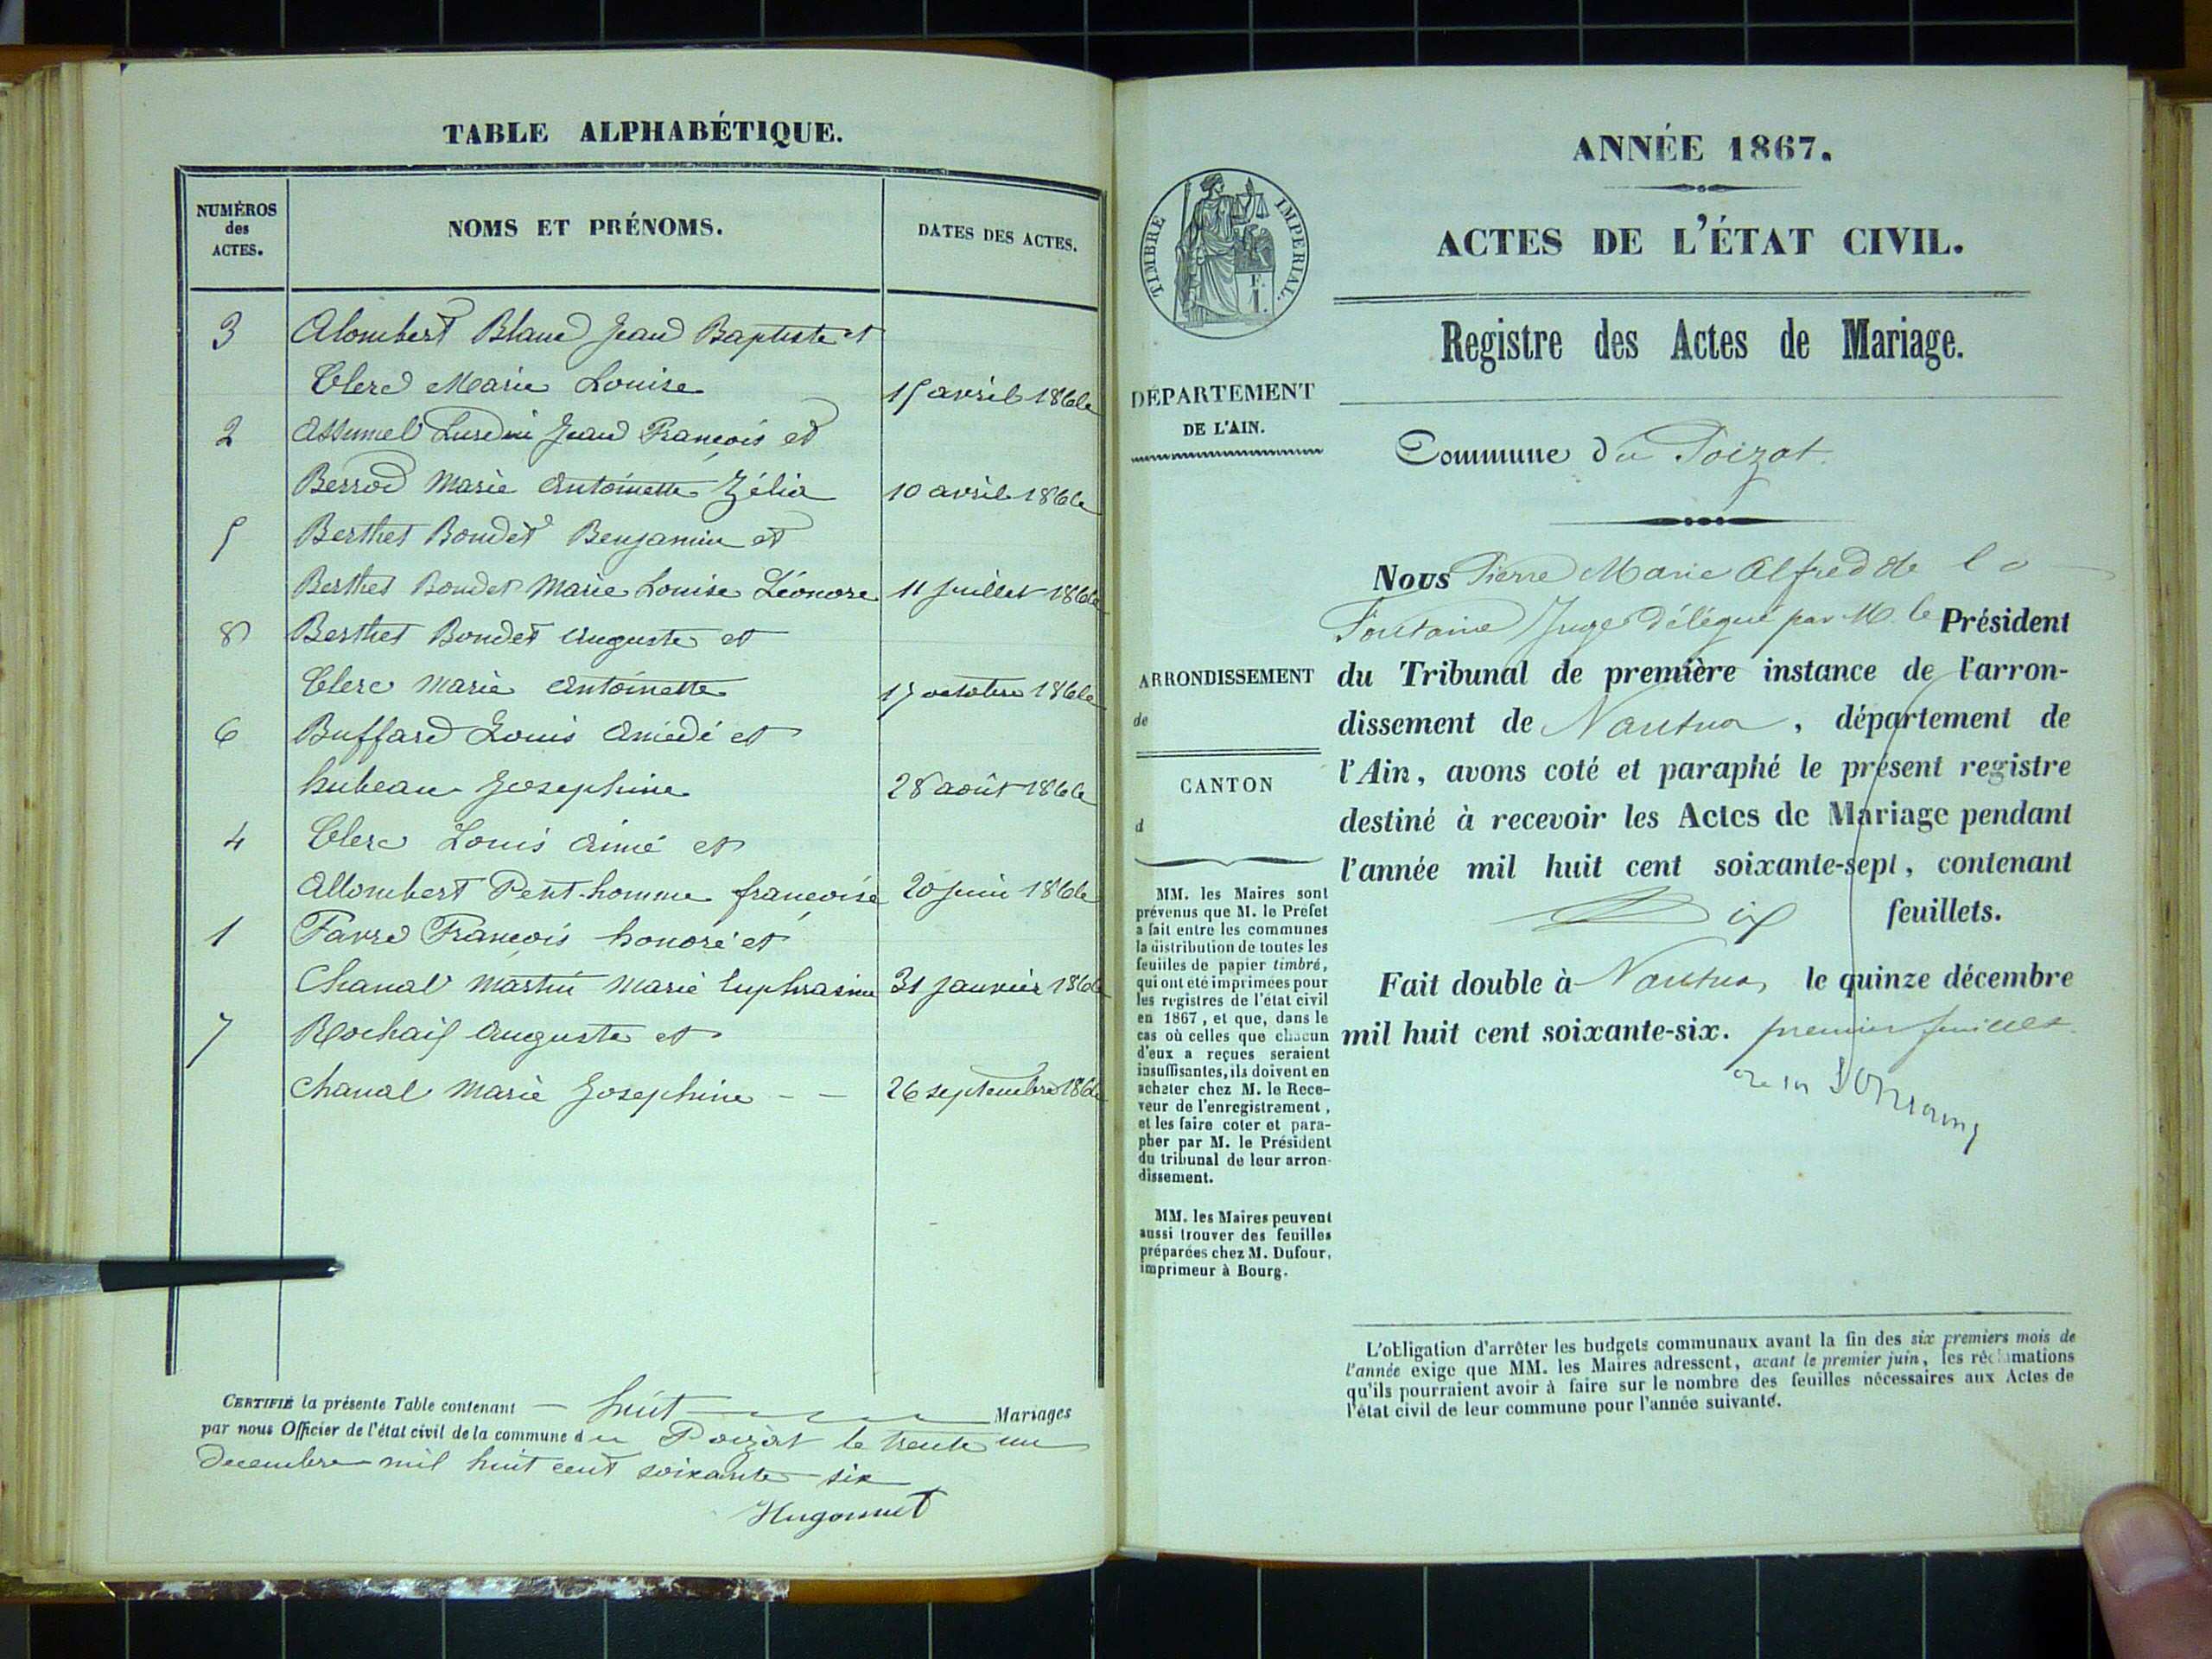 TABLE ALPHABÉTIQUE.
NUMÉROS
des
ACTES.
NOMS ET PRÉNOMS.
DATES DES ACTES.
3 Alombert Blanc Jean Baptiste et
Clerc Marie Louise 15 avril 1866
2 Assumel Lurdin Jean François et
Berrod Marie Antoinette Zélia 10 avril 1866
5 Berthet Bondet Benjamin et
Berthet Bondet Marie Louise Léonore 11 juillet 1866
8 Berthet Bondet Auguste et
Clerc Marie Antoinette 17 octobre 1866
6 Buffard Louis Amédé et
hubeau Josephine 28 août 1866
4 Clerc Louis Aimé et
Allombert Petit-homme françoise 20 juin 1866
1 Favre François honoré et
Chanal Martin Marie Euphrasine 31 janvier 1866
7 Rochaix Auguste et
Chanal Marie Josephine - - 26 septembre 1866
CERTIFIÉ la présente Table contenant — huit — Mariages
par nous Officier de l'état civil de la commune du Poizat le trente un
decembre mil huit cent soixante six
Hugonnet
ANNÉE 1867.
ACTES DE L'ÉTAT CIVIL.
TIMBRE IMPERIAL.
Registre des Actes de Mariage.
DÉPARTEMENT
DE L'AIN.
Commune du Poizat
ARRONDISSEMENT
de
CANTON
d
MM. les Maires sont
prévenus que M. le Préfet
a fait entre les communes
la distribution de toutes les
feuilles de papier timbré,
qui ont été imprimées pour
les registres de l'état civil
en 1867, et que, dans le
cas où celles que chacun
d'eux a reçues seraient
insuffisantes, ils doivent en
acheter chez M. le Rece-
veur de l'enregistrement,
et les faire coter et para-
pher par M. le Président
du tribunal de leur arron-
dissement.
MM. les Maires peuvent
aussi trouver des feuilles
préparées chez M. Dufour,
imprimeur à Bourg.
Nous Pierre Marie Alfred de la
Fontaine Juge délégué par M. le Président
du Tribunal de première instance de l'arron-
dissement de Nantua, département de
l'Ain, avons coté et paraphé le présent registre
destiné à recevoir les Actes de Mariage pendant
l'année mil huit cent soixante-sept, contenant
Dix feuillets.
Fait double à Nantua, le quinze décembre
mil huit cent soixante-six. premier feuillet
L'obligation d'arrêter les budgets communaux avant la fin des six premiers mois de
l'année exige que MM. les Maires adressent, avant le premier juin, les réclamations
qu'ils pourraient avoir à faire sur le nombre des feuilles nécessaires aux Actes de
l'état civil de leur commune pour l'année suivante.